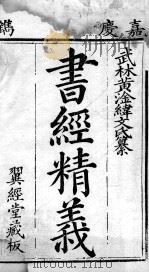 嘉慶
鐫
武林黃淦緯文氏纂
書經精義
翼經堂藏板